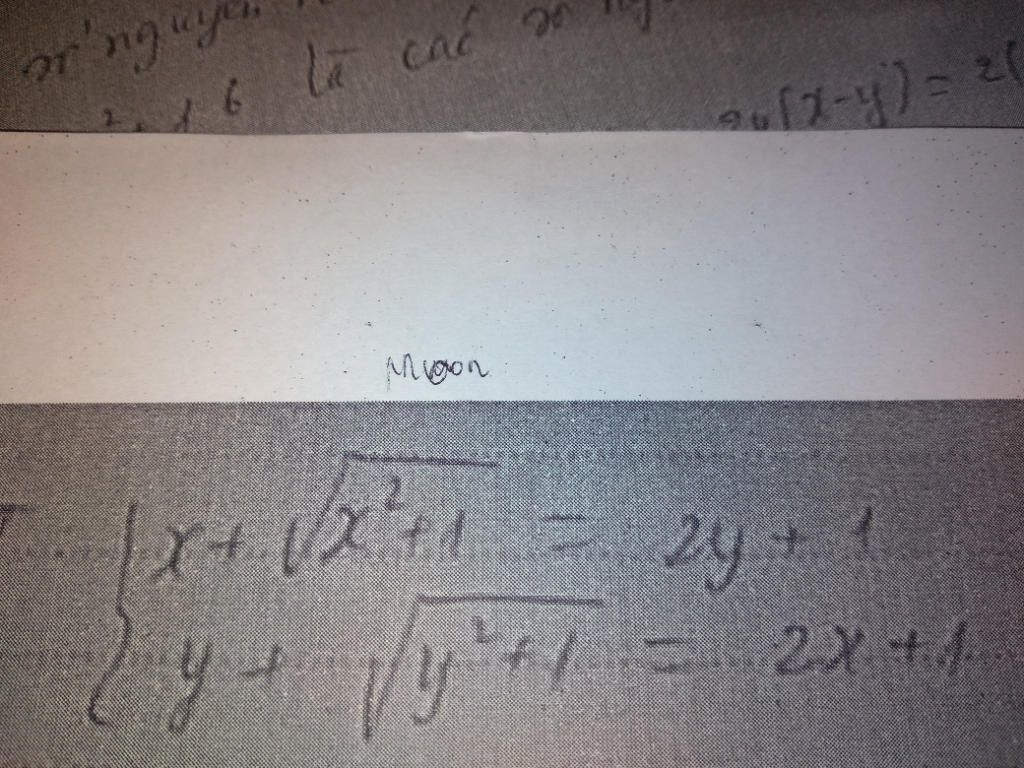 số nguyên
là các số
2 + 1 6
(x-y) = 2(
Mươn
x + √x²+1 = 2y + 1
y + √y²+1 = 2x + 1